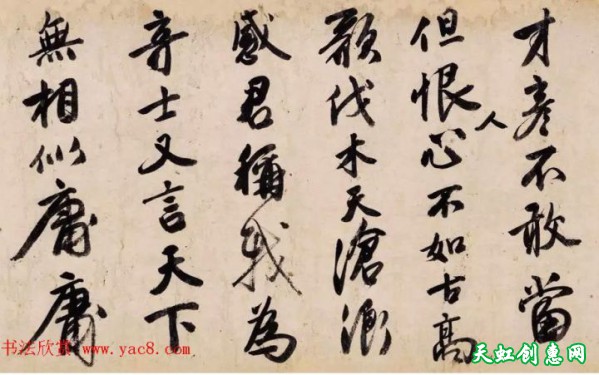 才彦不敢當
但恨人心不如古高
歌伐木天滄涼
感君稱我為
奇士又言天下
無相似庸庸
书法欣赏 www.yac8.com
天虹创惠网